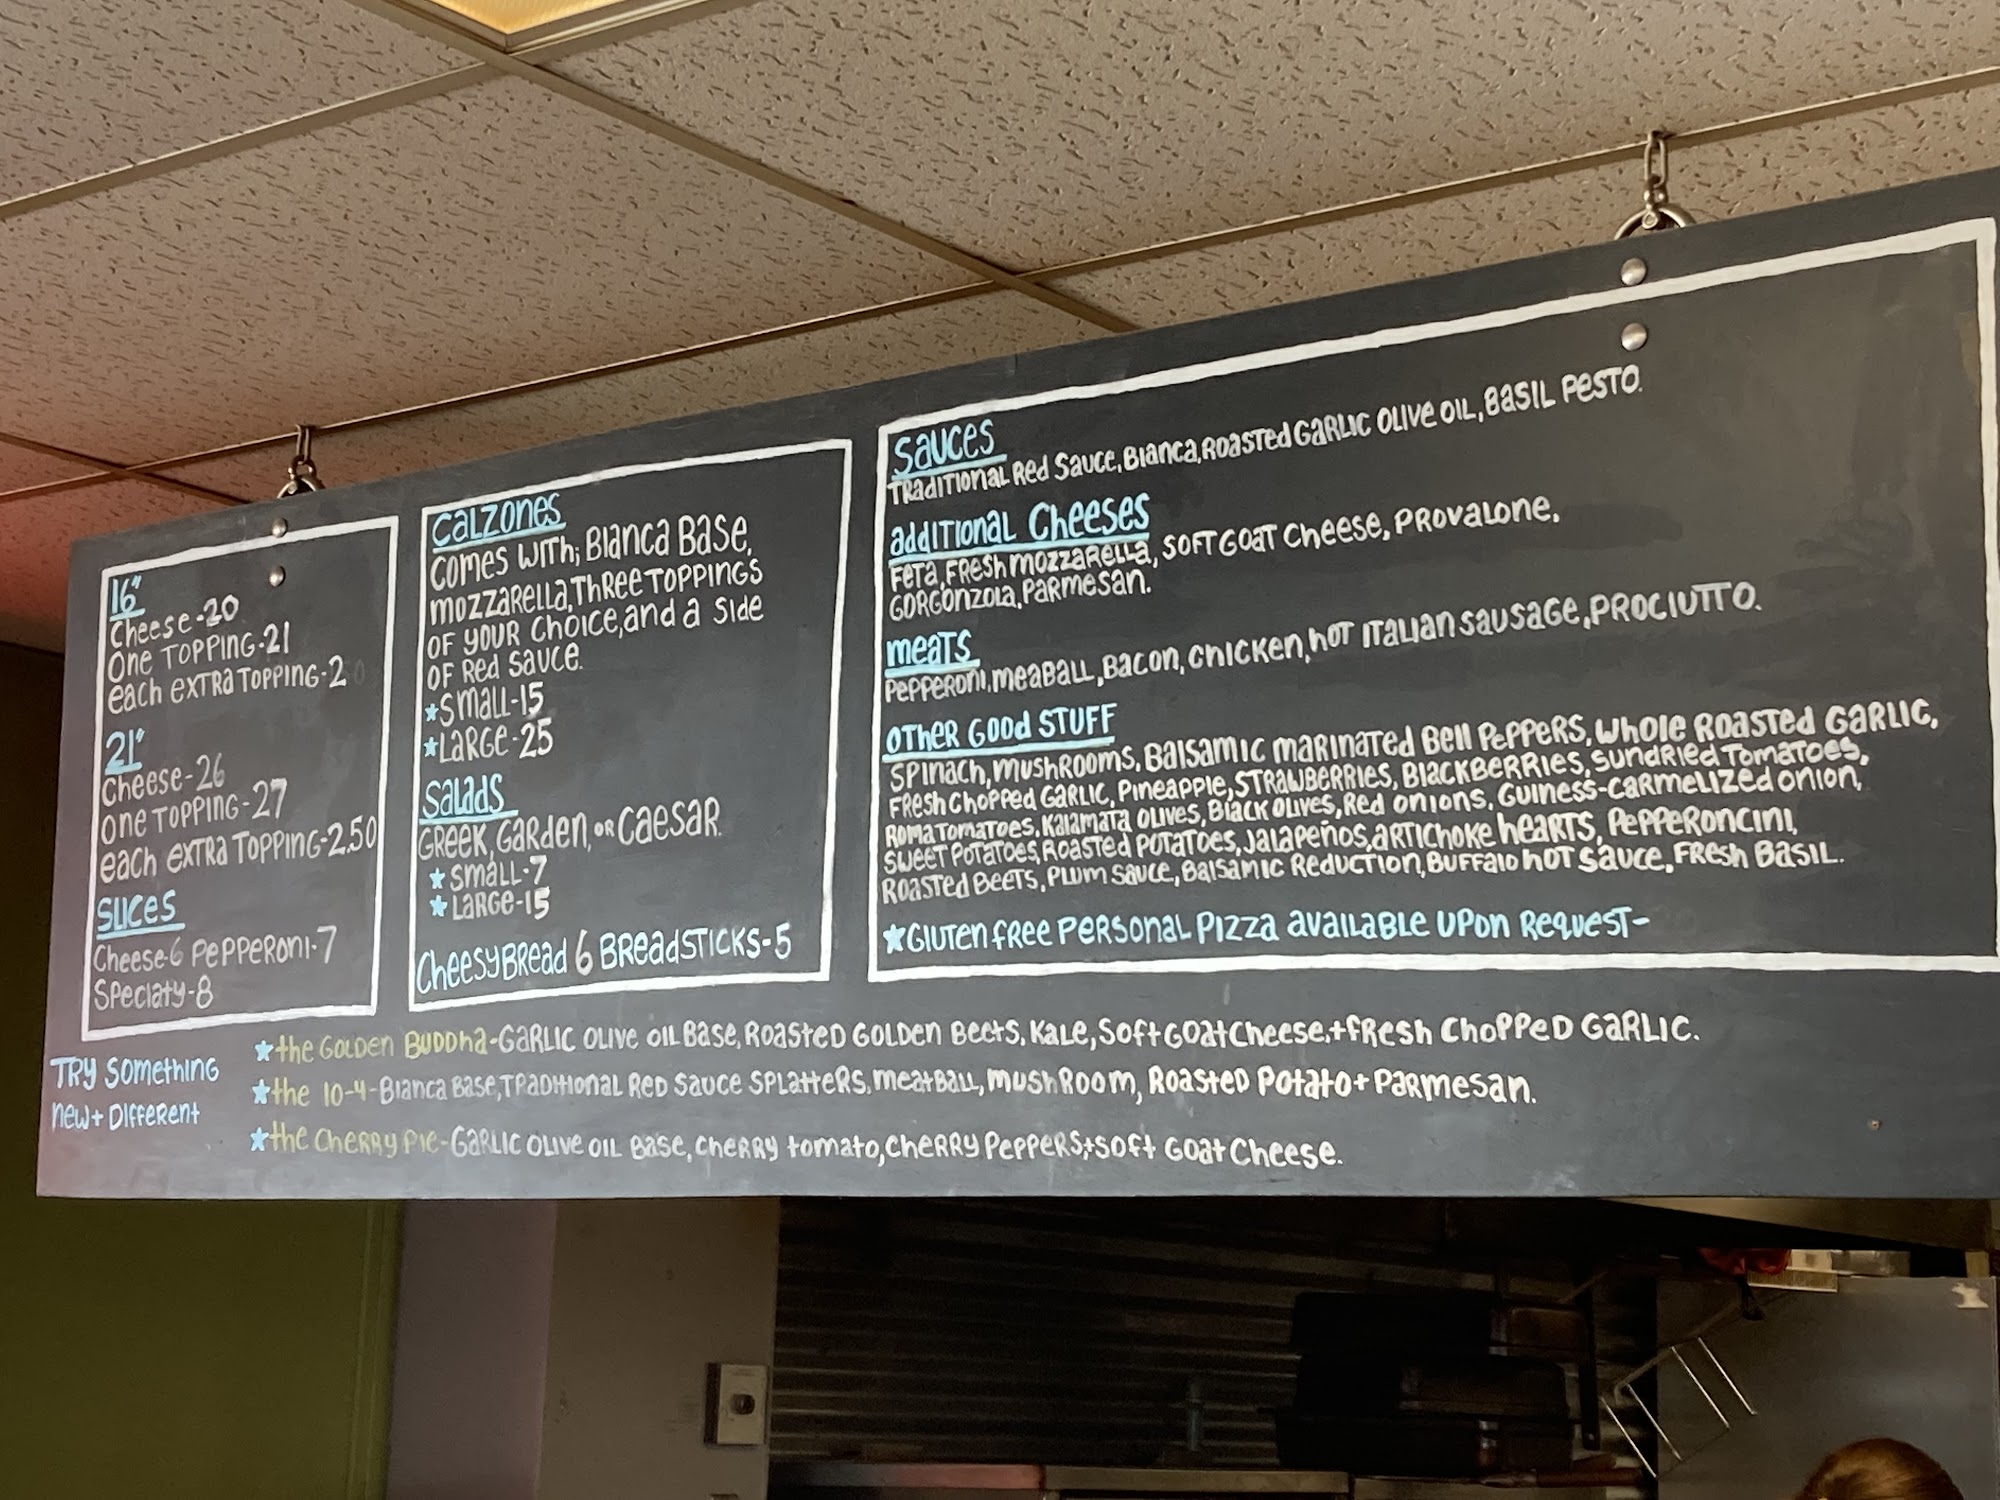 16"
Cheese-20
One Topping-21
each extra topping-2
21"
Cheese-26
One Topping-27
each extra topping-2.50
Slices
Cheese-6 Pepperoni-7
Speciaty-8
Calzones
Comes with; Bianca Base,
mozzarella, Three Toppings
of your choice, and a side
of Red sauce.
★Small-15
★Large-25
Salads
Greek, Garden, or Caesar
★Small-7
★Large-15
Cheesy Bread 6 Breadsticks-5
Sauces
Traditional Red Sauce, Bianca, Roasted Garlic Olive Oil, Basil Pesto.
additional Cheeses
Feta, Fresh mozzarella, Soft Goat Cheese, Provalone,
Gorgonzola, Parmesan.
meats
Pepperoni, meaBall, Bacon, Chicken, hot Italian sausage, Prociutto.
Other Good Stuff
Spinach, mushrooms, Balsamic marinated Bell Peppers, Whole Roasted Garlic,
Fresh Chopped Garlic, Pineapple, Strawberries, Blackberries, Sundried Tomatoes,
Roma Tomatoes, Kalamata Olives, Black Olives, Red Onions, Guiness-Carmelized Onion,
Sweet Potatoes, Roasted Potatoes, Jalapeños, Artichoke hearts, Pepperoncini,
Roasted Beets, Plum Sauce, Balsamic Reduction, Buffalo hot sauce, Fresh Basil.
★Gluten free Personal Pizza available upon Request-
Try Something
new + Different
★the Golden Buddha-Garlic Olive Oil Base, Roasted Golden Beets, Kale, Soft Goat Cheese, + fresh Chopped Garlic.
★the 10-4-Bianca Base, Traditional Red Sauce Splatters, meatball, mushroom, Roasted Potato + Parmesan.
★the Cherry Pie-Garlic Olive Oil Base, Cherry tomato, Cherry Peppers, + soft Goat Cheese.